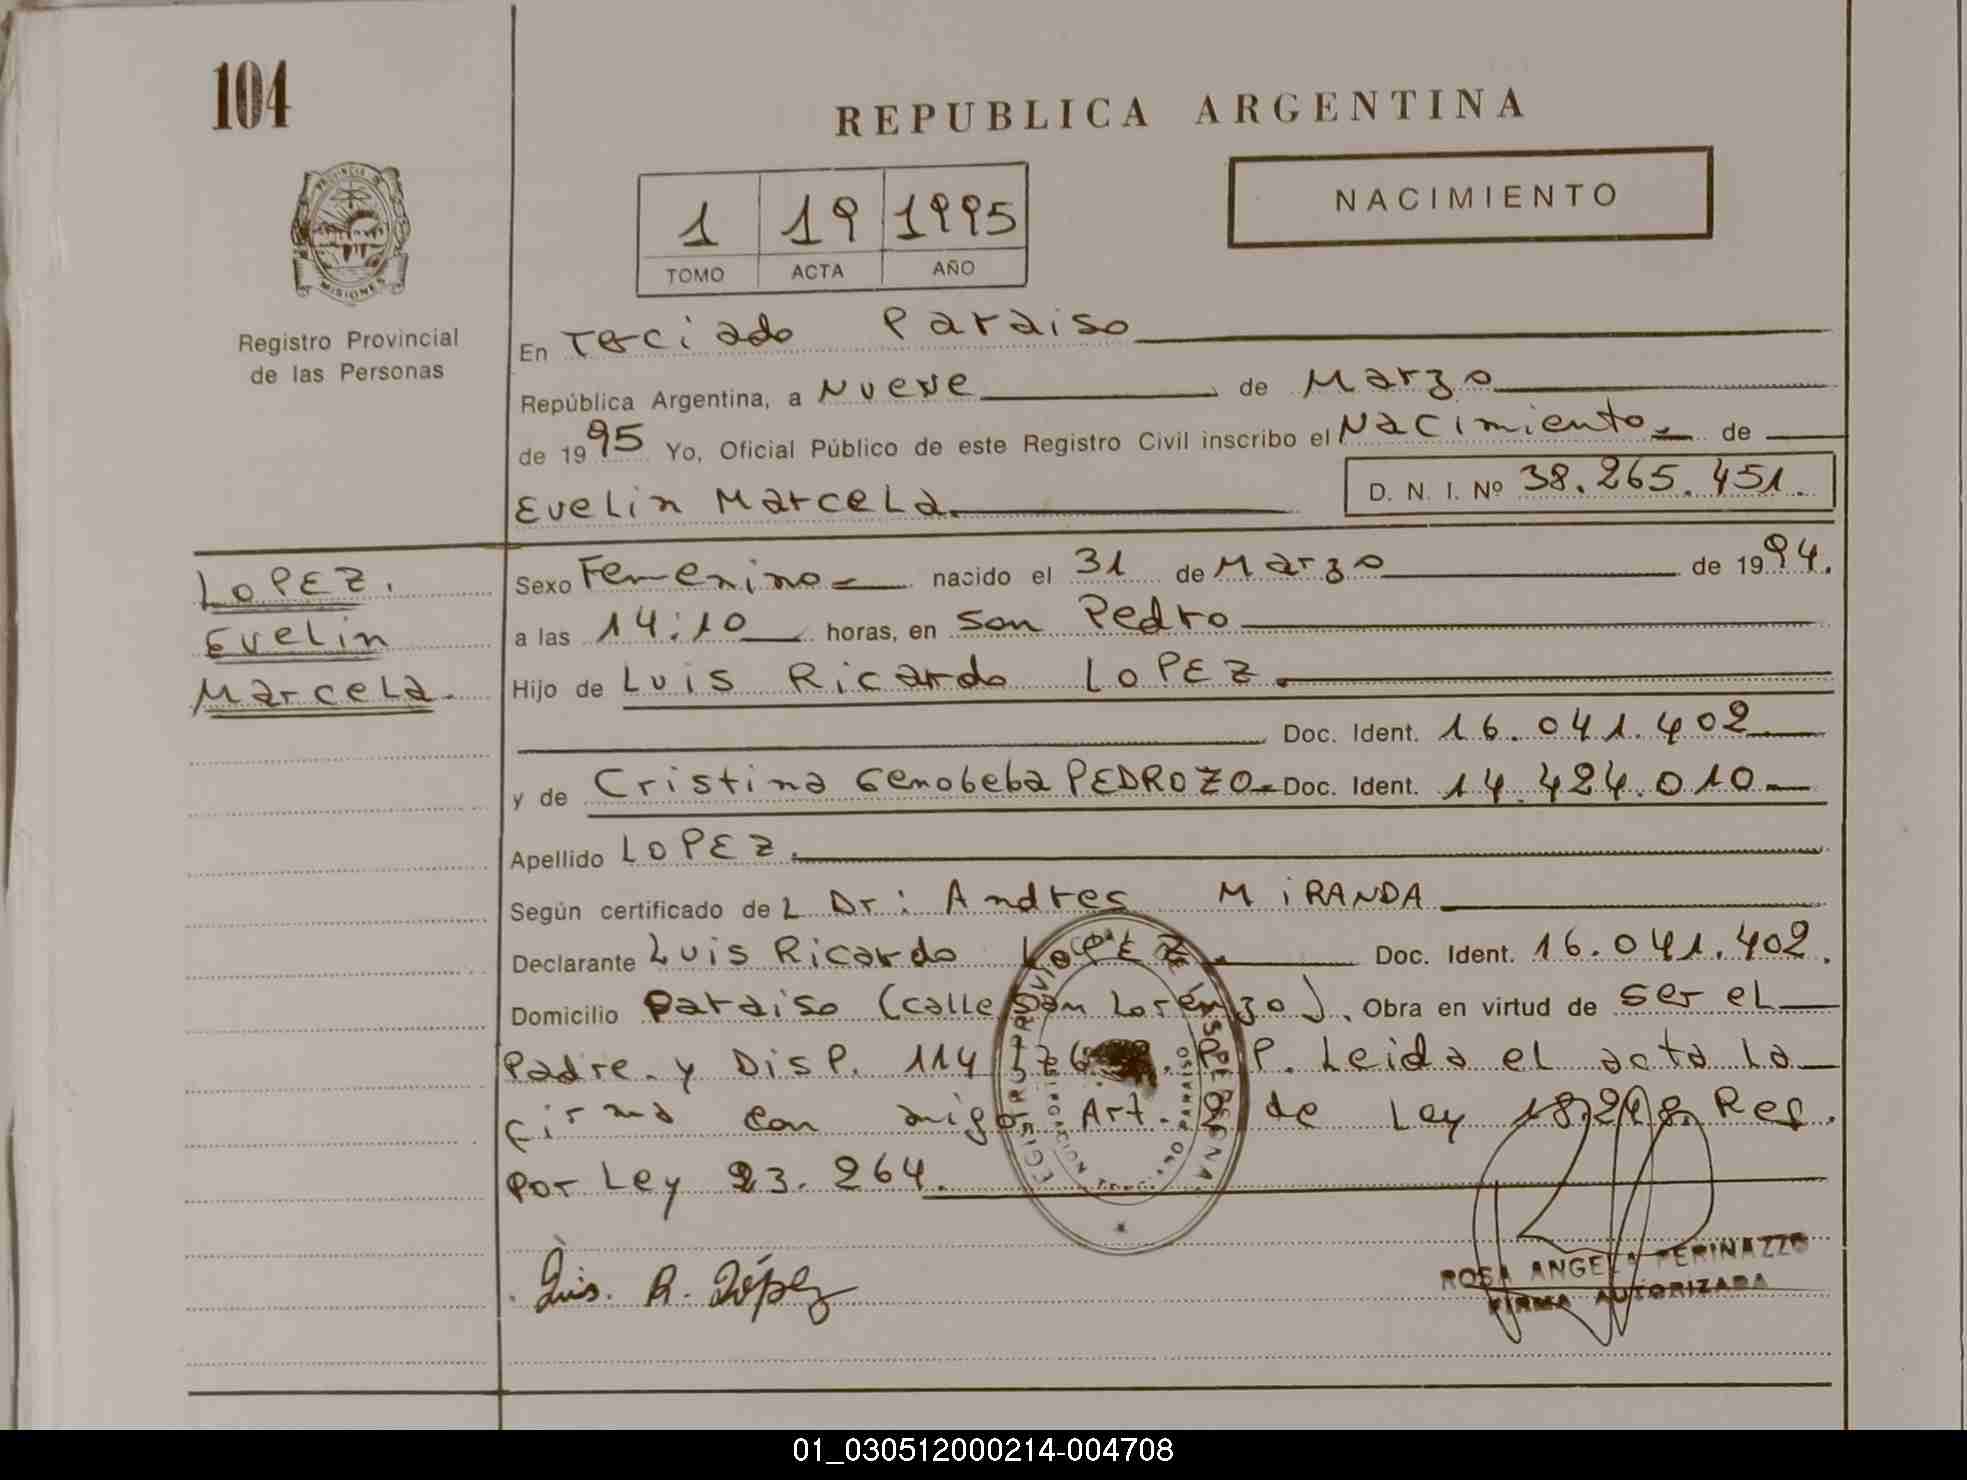 104
REPUBLICA ARGENTINA
PROVINCIA DE
MISIONES
Registro Provincial
de las Personas
1 19 1995
TOMO ACTA AÑO
NACIMIENTO
En Terciado Paraiso
República Argentina, a Nueve de Marzo
de 1995 Yo, Oficial Público de este Registro Civil inscribo el Nacimiento de
Evelin Marcela. D. N. I. Nº 38.265.451.
LOPEZ.
Evelin
Marcela.
Sexo Femenino nacido el 31 de Marzo de 1994.
a las 14:10 horas, en San Pedro
Hijo de Luis Ricardo LOPEZ.
Doc. Ident. 16.041.402
y de Cristina Genobeba PEDROZO Doc. Ident. 14.424.010
Apellido LOPEZ.
Según certificado de L Dr: Andres MIRANDA
Declarante Luis Ricardo LOPEZ. Doc. Ident. 16.041.402.
Domicilio Paraiso (calle San Lorenzo). Obra en virtud de ser el
Padre. y Disp. 114 P. Leida el acta la
firma con migo Art. de Ley 18.248. Ref.
por Ley 23.264.
Luis. R. López
ROSA ANGELA PERINAZZO
FIRMA AUTORIZADA
01_030512000214-004708